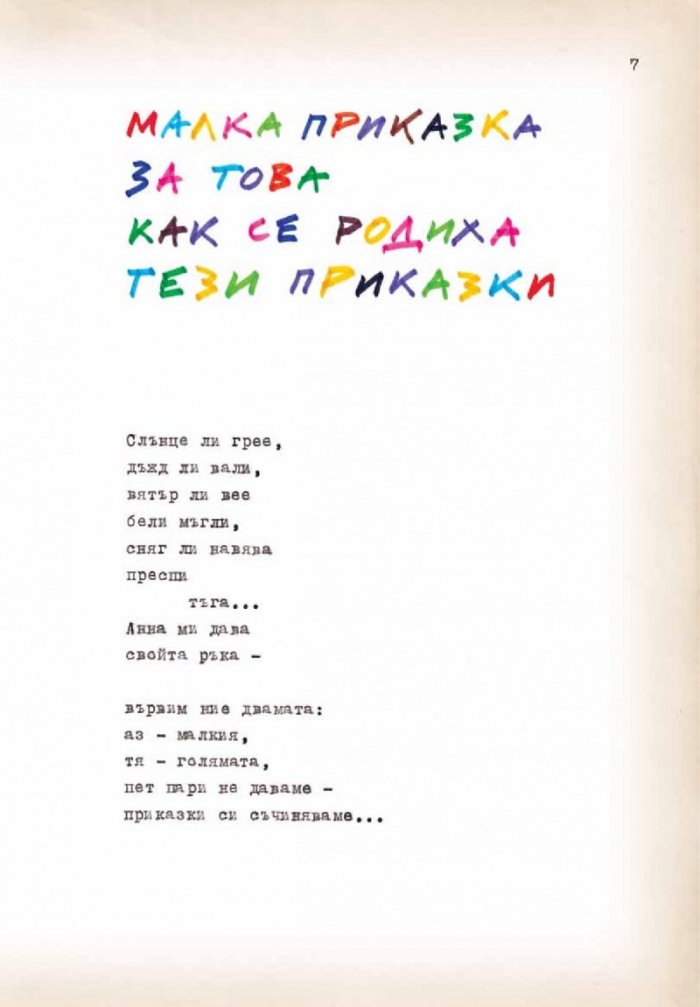 7
МАЛКА ПРИКАЗКА
ЗА ТОВА
КАК СЕ РОДИХА
ТЕЗИ ПРИКАЗКИ
Слънце ли грее,
дъжд ли вали,
вятър ли вее
бели мъгли,
сняг ли навява
преспи
тъга...
Анна ми дава
свойта ръка -
вървим ние двамата:
аз - малкия,
тя - голямата,
пет пари не даваме -
приказки си съчиняваме...